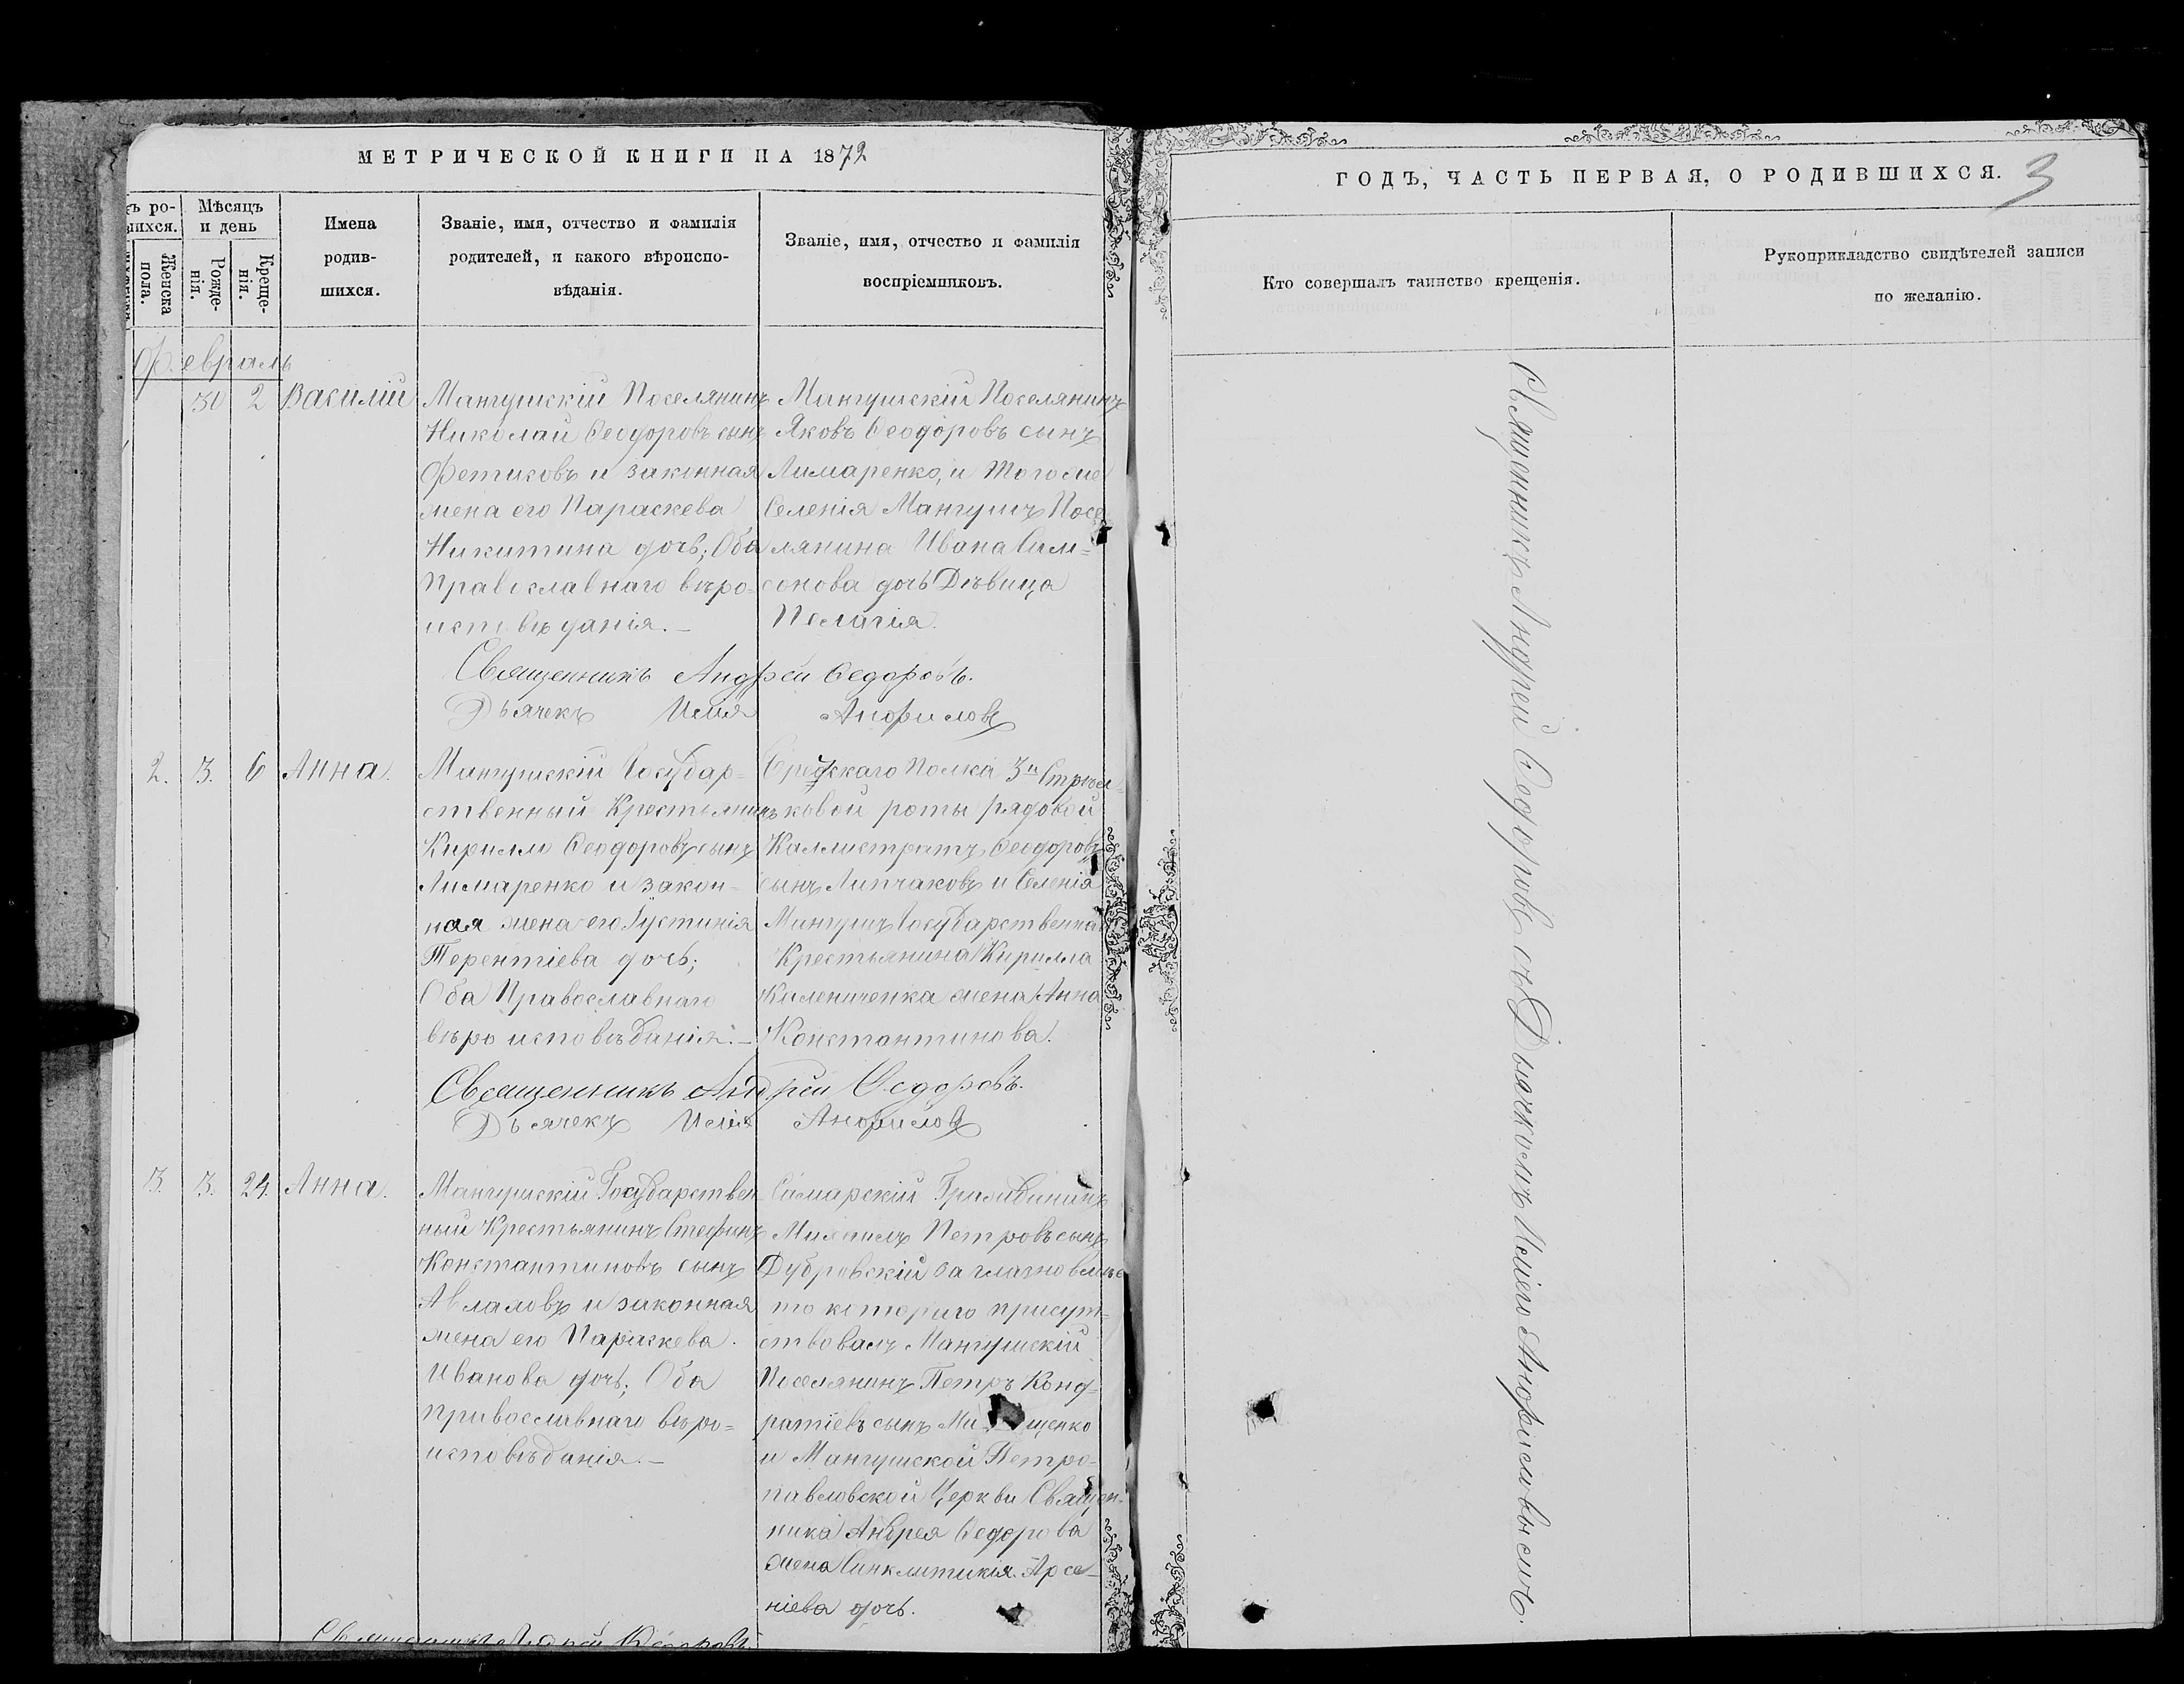 МЕТРИЧЕСКОЙ КНИГИ НА 1872
ГОДЪ, ЧАСТЬ ПЕРВАЯ, О РОДИВШИХСЯ.
3
ъ ро-
шихся.
Женска
пола.
Мѣсяцъ
и день
Рожде-
нія.
Креще-
нія.
Имена
родив-
шихся.
Званіе, имя, отчество и фамилія
родителей, и какого вѣроиспо-
вѣданія.
Званіе, имя, отчество и фамилія
воспріемниковъ.
Кто совершалъ таинство крещенія.
Рукоприкладство свидѣтелей записи
по желанію.
Февраль
30 2 Василій
Мангушскій Поселянинъ
Николай Ѳеодоровъ сынъ
Фетисовъ и законная
жена его Параскева
Никитина дочь; Оба
Православнаго вѣро-
исповѣданія.-
Мангушскій Поселянинъ
Яковъ Ѳеодоровъ сынъ
Лимаренко, и того же
Селенія Мангушъ Посе
лянина Ивана Сам=
сонова дочь Дѣвица
Пелагія.
Священникъ Андрей Ѳедоровъ.
Дьячекъ Илія
2. 3. 6 Анна.
Мангушскій Государ=
ственный Крестьянинъ
Кириллъ Ѳеодоровъ сынъ
Лимаренко и закон=
ная жена его Іустинія
Терентіева дочь;
Оба Православнаго
вѣроисповѣданія.-
Полка 3й Стрѣл
ковой роты рядовой
Каллистратъ Ѳеодоровъ
сынъ Липчаковъ и Селенія
Мангушъ Государственна
Крестьянина Кирилла
жена Анна
Константинова.
Священникъ Андрей Ѳедоровъ.
Дьячекъ Илія
3. 3. 24. Анна.
Мангушскій Государствен
ный Крестьянинъ Стефанъ
Константиновъ сынъ
и законная
жена его Параскева
Иванова дочь; Оба
православнаго вѣро=
исповѣданія.-
Самарскій Гражданинъ
Михаилъ Петровъ сынъ
Дубровскій
то котораго присут=
ствовалъ Мангушскій
Поселянинъ Петръ Конд=
ратіевъ сынъ
и Мангушской Петро-
павловской Церкви Священ-
ника Андрея Ѳедорова
жена Синклитикія Арсе-
ніева дочь.
Священникъ Андрей Ѳедоровъ
Священникъ Андрей Ѳедоровъ съ Дьячкомъ Иліею